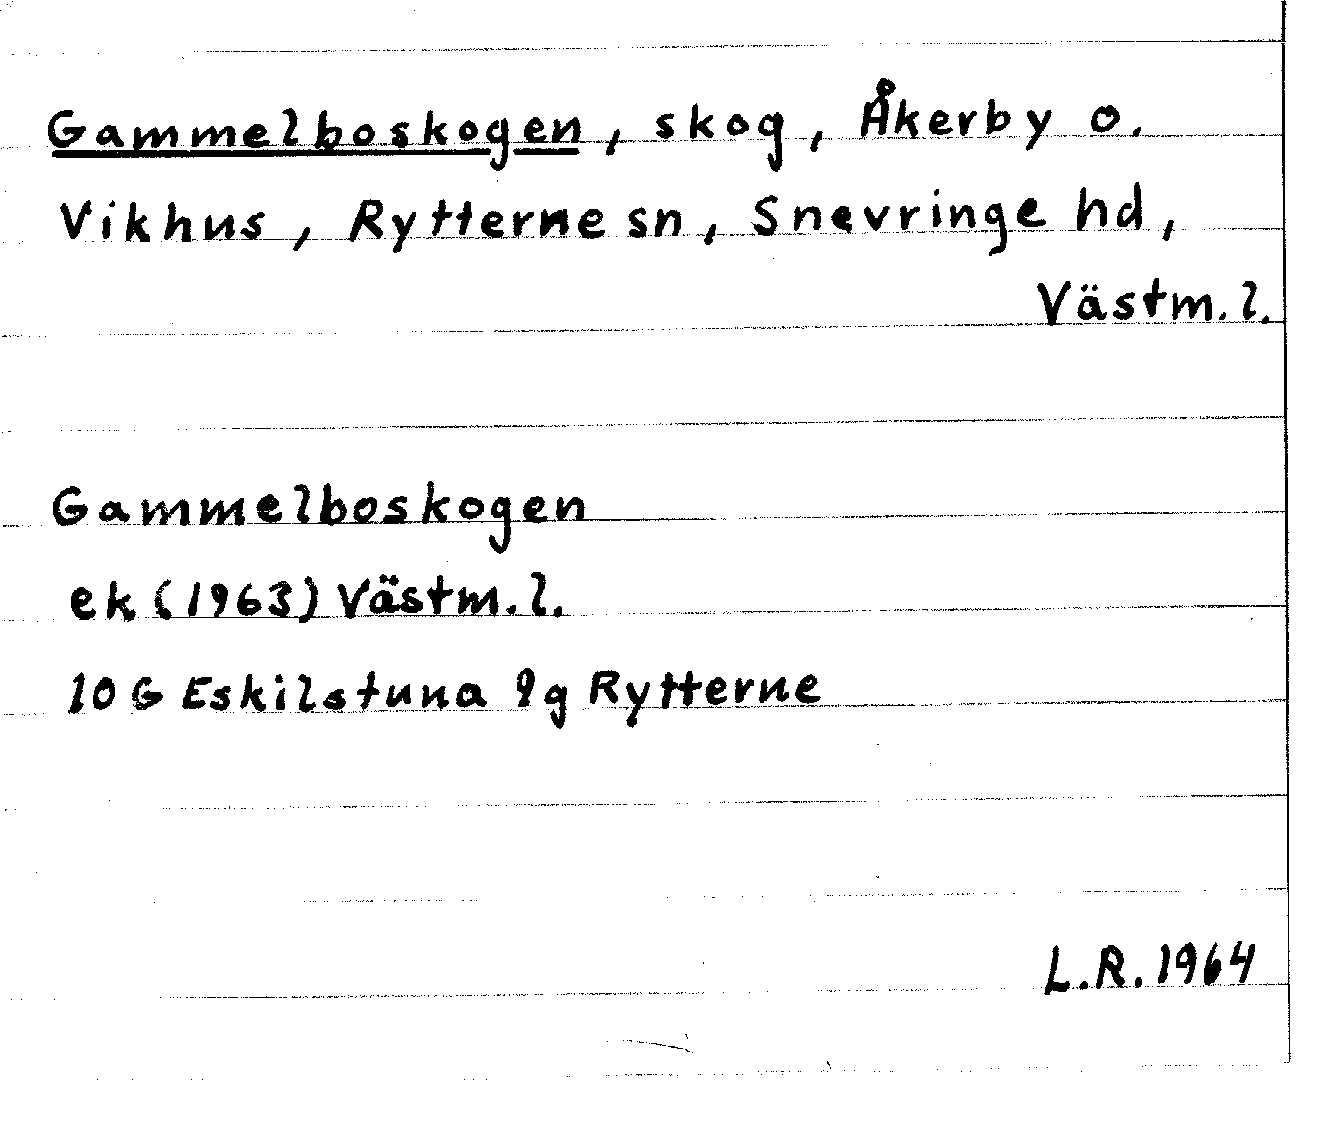 Gammelboskogen, skog, Åkerby o.
Vikhus, Rytterne sn, Snevringe hd,
Västm. l.
Gammelboskogen
ek (1963) Västm. l.
10 G Eskilstuna 9g Rytterne
L.R. 1964